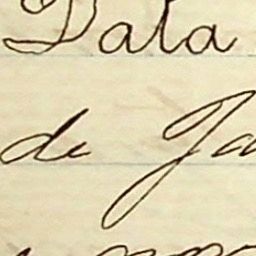 Data
de Ja